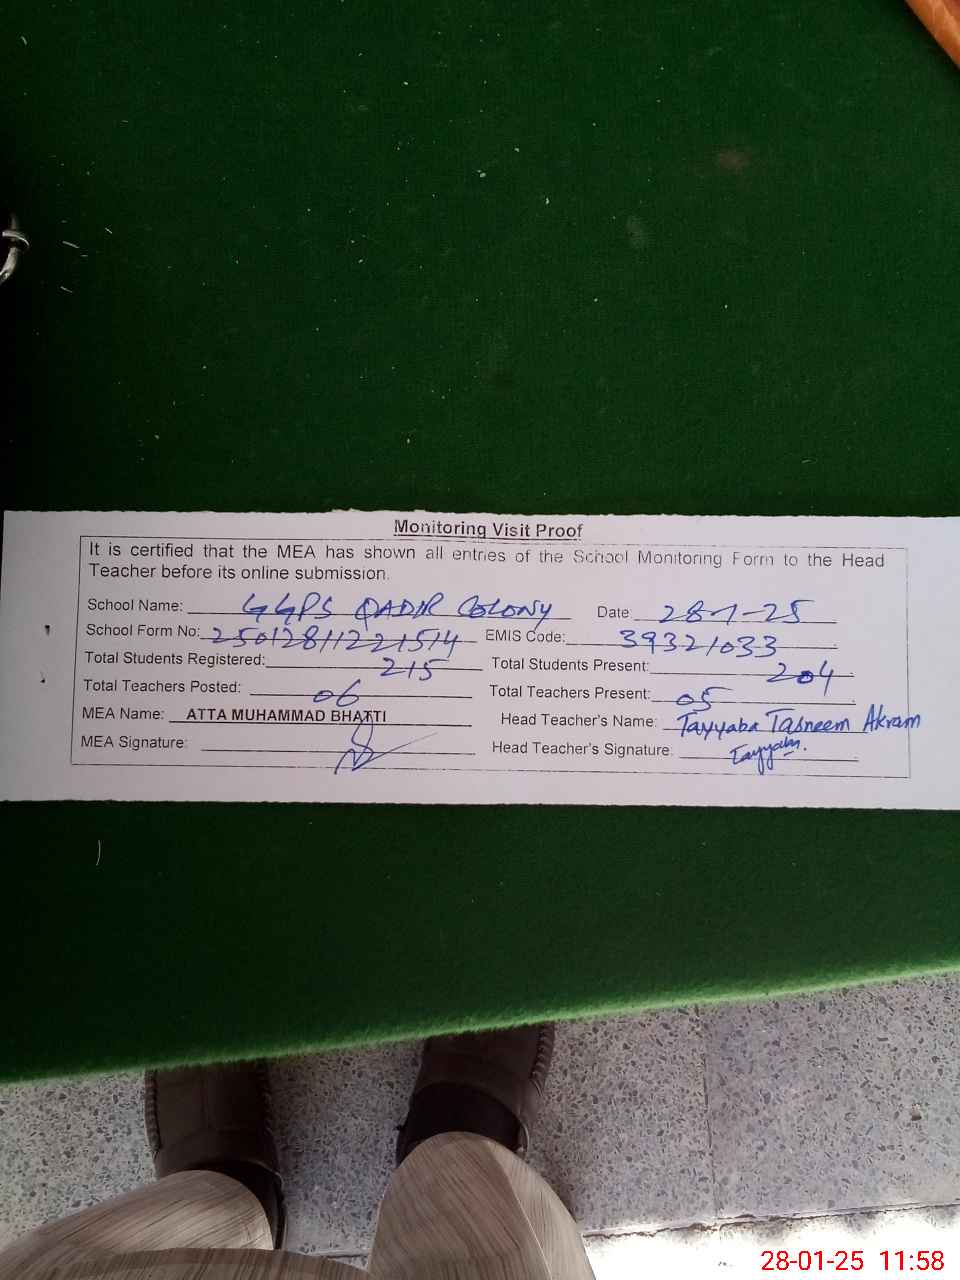 Monitoring Visit Proof
It is certified that the MEA has shown all entries of the School Monitoring Form to the Head
Teacher before its online submission.
School Name: GGPS QADIR COLONY Date: 28-1-25
School Form No: 25012811221514 EMIS Code: 39321033
Total Students Registered: 215 Total Students Present: 204
Total Teachers Posted: 06 Total Teachers Present: 05
MEA Name: ATTA MUHAMMAD BHATTI Head Teacher's Name: Tayyaba Tasneem Akram
MEA Signature: Head Teacher's Signature: Tayyaba.
28-01-25 11:58